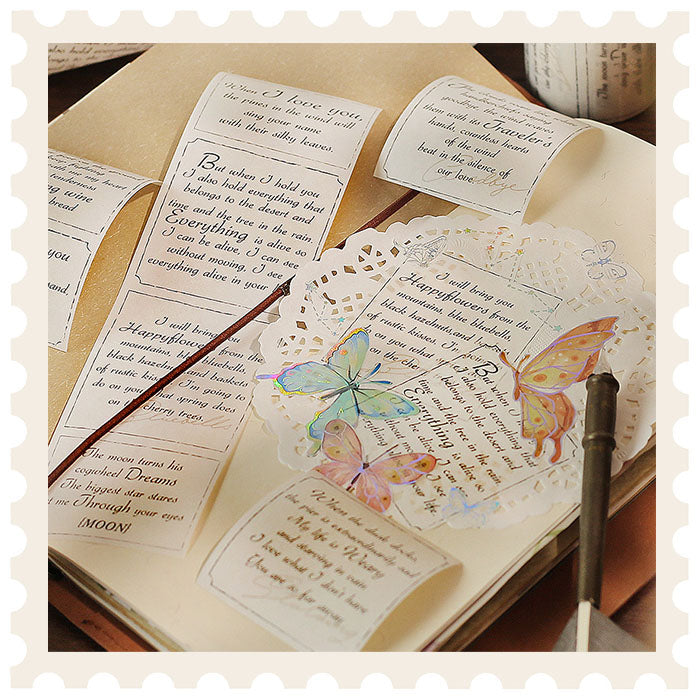 also hold everything
The moon turns
following
with me my heart
tenderness
ing wine
bread
you
hand,
When I love you,
the pines in the wind will
sing your name
with their silky leaves.
But when I hold you
I also hold everything that
belongs to the desert and
time and the tree in the rain.
Everything is alive so
I can be alive, I can see
without moving, I see
everything alive in your
I will bring you
Happyflowers from the
mountains, blue bluebells,
black hazelnuts, and baskets
of rustic kisses. I'm going to
do on you that spring does
on the cherry trees.
The moon turns his
cogwheel Dreams
The biggest star stares
at me Through your eyes
{MOON}
goodbye, the wind waves
them with its Traveler's
hands, countless hearts
of the wind
beat in the silence of
our love.
I will bring you
Happyflowers from the
mountains, blue bluebells,
black hazelnuts, and
of rustic kisses. I'm
do on you what
on the cher
But when
I also hold everything
belongs to the desert and
time and the tree in the rain.
Everything is alive so
I can be alive, I
When the dusk docks,
the pier is extraordinarily sad
My life is Weary
and starving in vain
I love what I don't have
You are so far away